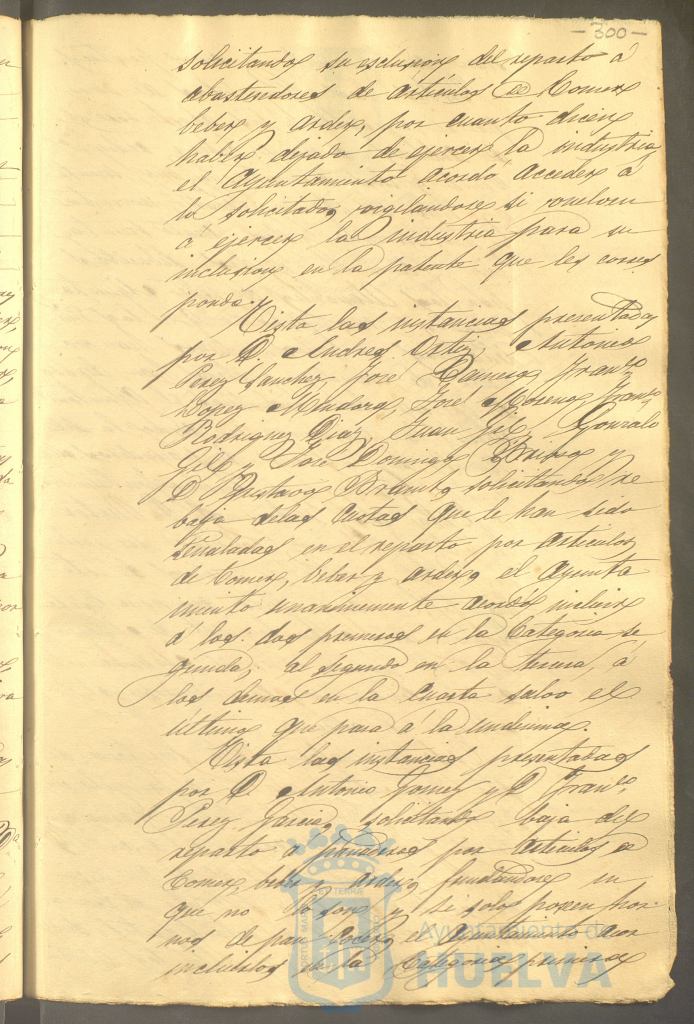 - 300 -
solicitando su esclusion del reparto á
abastecedores de artículos de Comer
beber y arder, por cuanto dicen
haber dejado de ejercer la industria
el Ayuntamiento acordó acceder á
lo solicitado, vigilandose si vuelven
á ejercer la industria para su
inclusion en la patente que les corres
ponda.
Vista las instancias presentadas
por D. Andres Ortiz, Antonio
Perez Sanchez, José Franco
Lopez José Moreno, Franco
Rodriguez Diaz, Juan Gil, Gonzalo
Gil y José Domingo y
D. Gustavo solicitando re
baja de las Cuotas que le han sido
señaladas en el reparto por artículos
de Comer, beber y arder, el Ayunta
miento unanimemente acordó incluir
á los dos primeros en la Categoria se
gunda, al segundo en la tercera, á
los demas en la Cuarta salvo el
último que pasa á la undecima.
Vista las instancias presentadas
por D. Antonio Gomez y D. Franco
Perez Garcia, solicitando baja del
reparto á por artículos de
Comer, beber y arder, fundandose en
que no lo son y se solo poseen hor-
nos de pan cocer, el Ayuntamiento acor
incluirlos en la Categoria primera
Ayuntamiento de
HUELVA